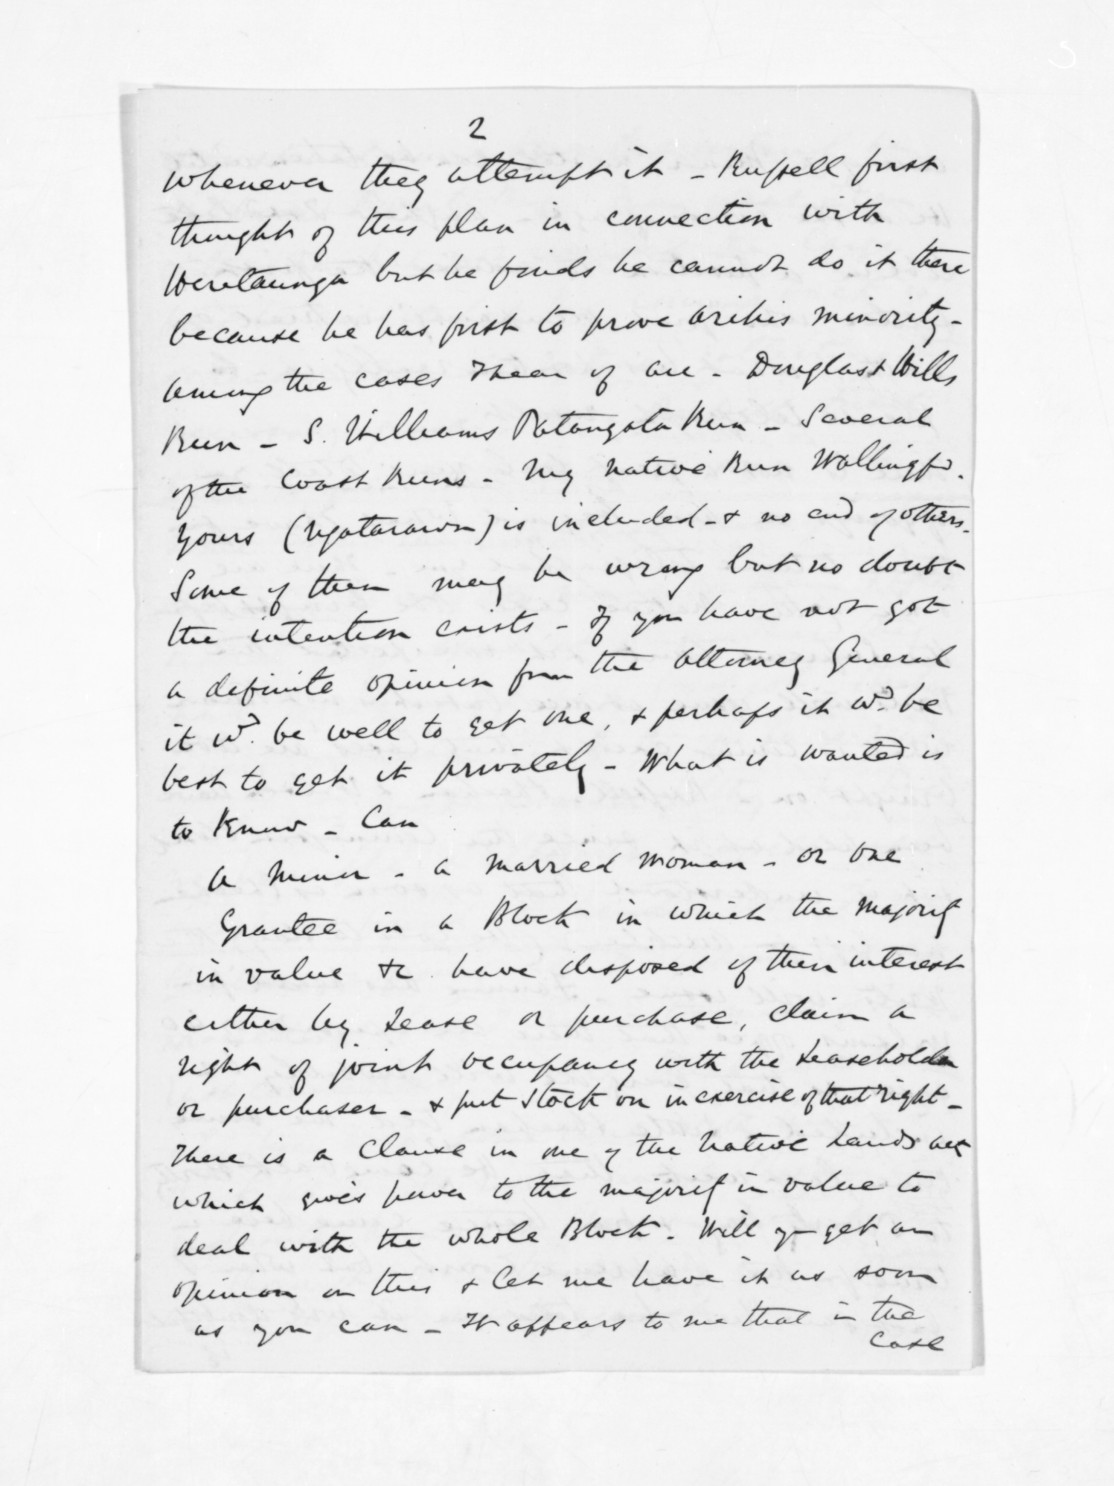 2
whenever they attempt it - Russell first
thought of this plan in connection with
Heretaunga but he finds he cannot do it there
because he has first to prove Arihis minority -
among the cases I hear of are - Douglas & Hills
Run - S. Williams Patangata Run - Several
of the Coast Runs - My native Run Wallingfd.
Yours (Ngatarawa) is included - & no end of others.
Some of them may be wrong but no doubt
the intention exists - If you have not got
a definite opinion from the Attorney General
it wd. be well to get one, & perhaps it wd. be
best to get it privately - What is wanted is
to know - Can
a minor - a married woman - or one
Grantee in a Block in which the majority
in value &c have disposed of their interest
either by Lease or purchase, claim a
right of joint occupancy with the Leaseholder
or purchaser - & put stock on in exercise of that right -
There is a Clause in one of the Native Lands act
which gives power to the majority in value to
deal with the whole Block. Will you get an
opinion on this & let me have it as soon
as you can - It appears to me that in the
case